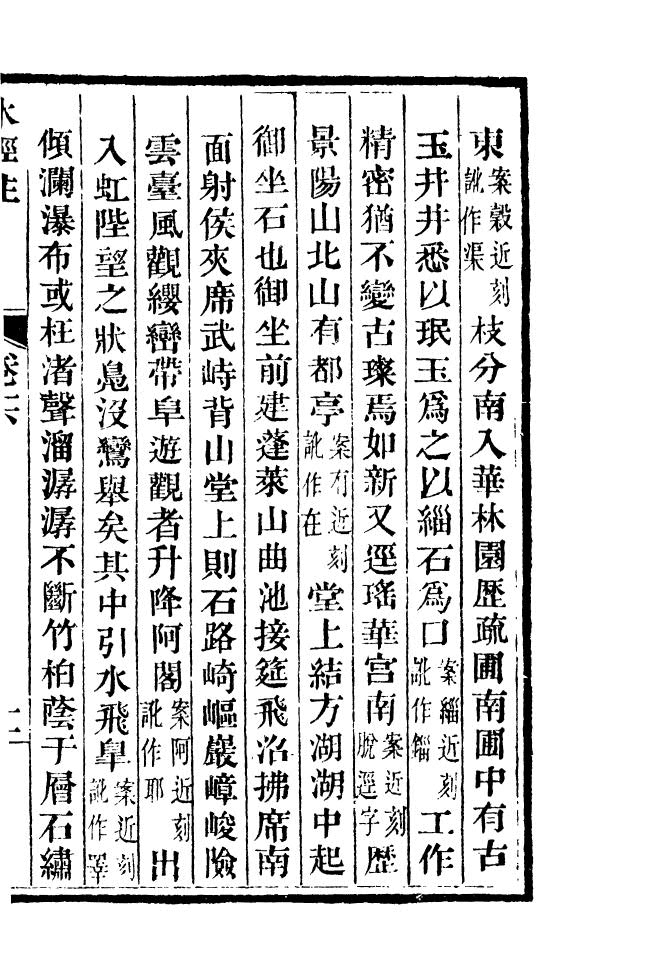 東案穀近刻訛作渠枝分南入華林園歷疏圃南圃中有古
玉井井悉以珉玉爲之以緇石爲口案緇近刻訛作錙工作
精密猶不變古璨焉如新又逕瑤華宮南案近刻脫逕字歷
景陽山北山有都亭案有近刻訛作在堂上結方湖湖中起
御坐石也御坐前建蓬萊山曲池接筵飛沼拂席南
面射侯夾席武峙背山堂上則石路崎嶇巖嶂峻險
雲臺風觀纓巒帶阜遊觀者升降阿閣案阿近刻訛作耶出
入虹陛望之狀鳧沒鸞舉矣其中引水飛臯案近刻訛作睪
傾瀾瀑布或枉渚聲溜潺潺不斷竹柏蔭于層石繡
水經注